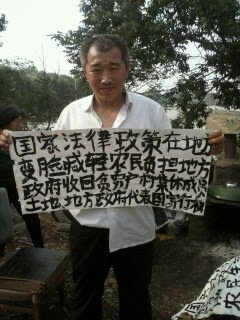 国家法律政策在地方
变脸减轻农民负担地方
政府收回负资产村集体成员
土地地方政府代表国家行权